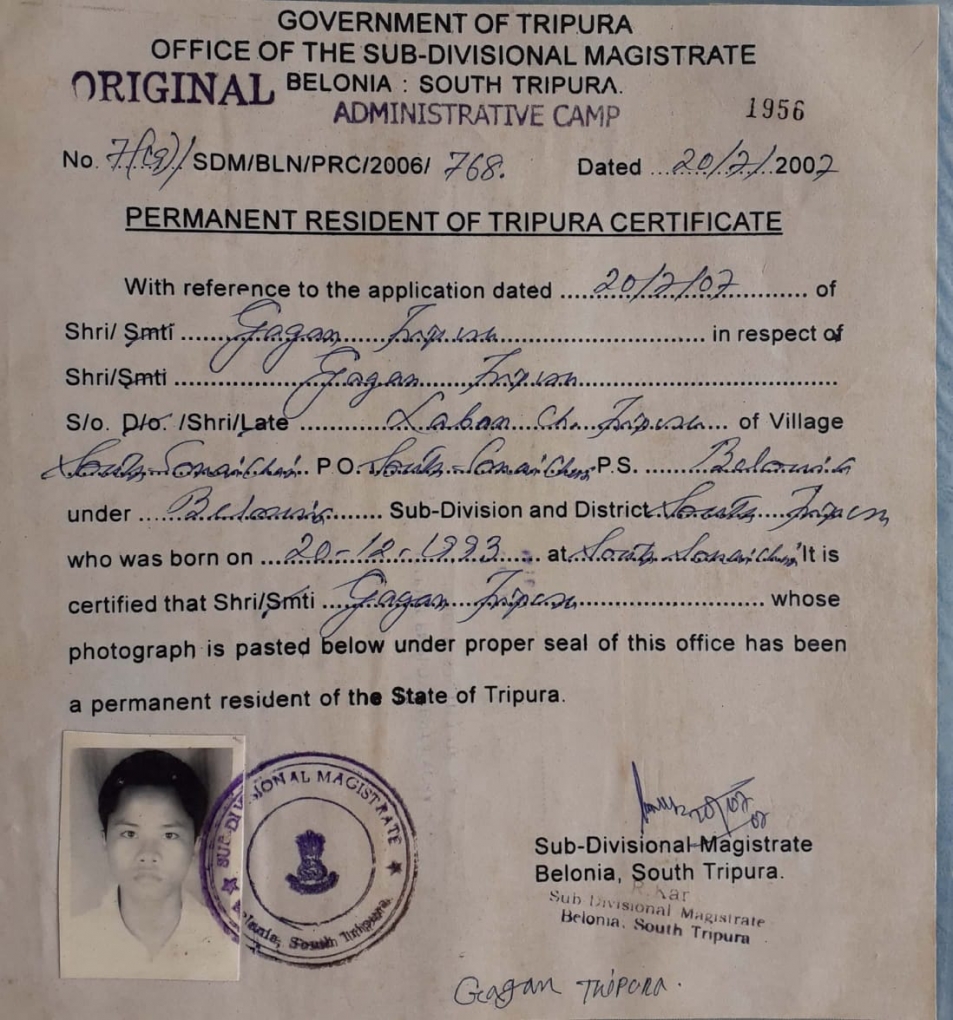 GOVERNMENT OF TRIPURA
OFFICE OF THE SUB-DIVISIONAL MAGISTRATE
ORIGINAL BELONIA : SOUTH TRIPURA.
ADMINISTRATIVE CAMP 1956
No. 7(19)/SDM/BLN/PRC/2006/ 768. Dated ...20/7/2007
PERMANENT RESIDENT OF TRIPURA CERTIFICATE
With reference to the application dated ...20/7/07... of
Shri/ Smti ...Gagan Tripura... in respect of
Shri/Smti ...Gagan Tripura...
S/o. D/o. /Shri/Late ...Laban Ch. Tripura... of Village
South Sonaichari P.O. South Sonaichari P.S. ...Belonia
under ...Belonia... Sub-Division and District South Tripura
who was born on ...20-12-1993... at South Sonaichari It is
certified that Shri/Smti ...Gagan Tripura... whose
photograph is pasted below under proper seal of this office has been
a permanent resident of the State of Tripura.
SUB-DIVISIONAL MAGISTRATE
Belonia, South Tripura.
20/07/07
Sub-Divisional Magistrate
Belonia, South Tripura.
R. Kar
Sub Divisional Magistrate
Belonia, South Tripura
Gagan TRIPURA.